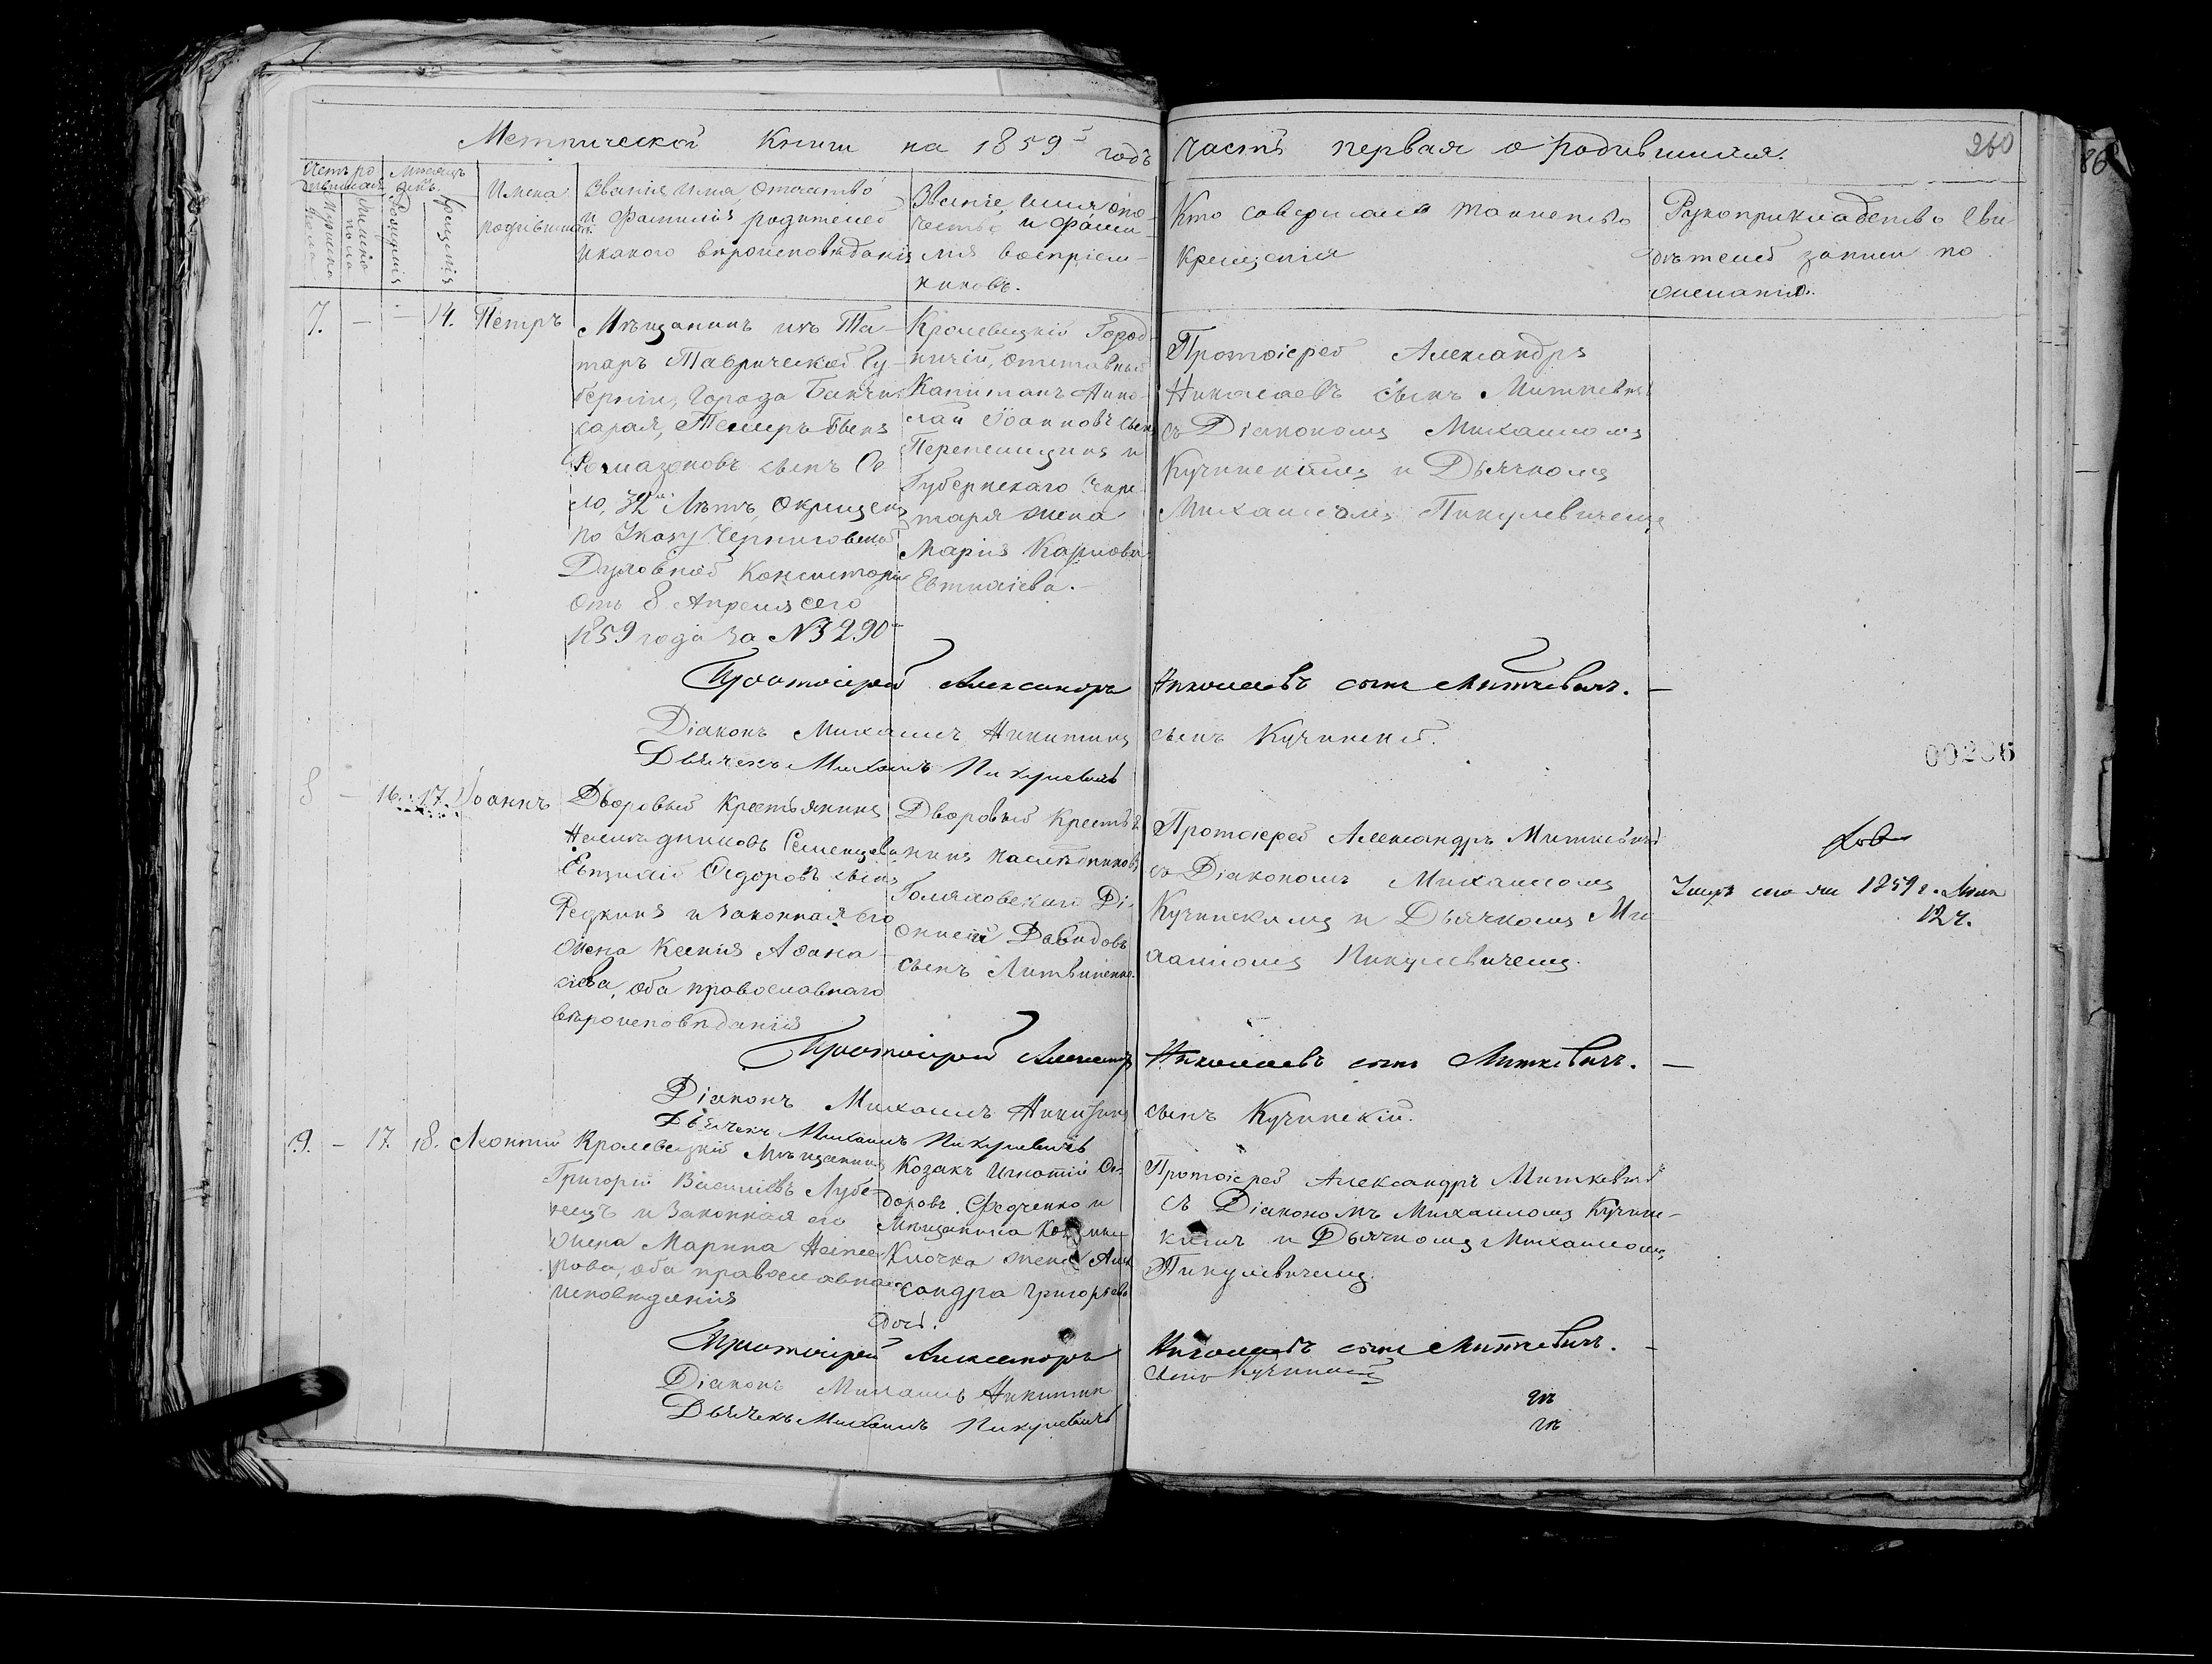 Метрической Книги на 1859й годъ
часть первая о родившихся.
260
86
Счетъ родившихся
Мужеска пола
Женска пола
Мѣсяцъ день
Рожденія
Крещенія
Имена
родившихся
Званія имя, отчество
и фамилія родителей
и какого вѣроисповѣданія
Званіе, имя, отчество
и фамилія воспріем-
никовъ.
Кто совершалъ таинство
крещенія
Рукоприкладство сви-
дѣтелей записи по
желанію.
7. — — 14. Петръ
Мѣщанинъ изъ Та-
таръ Таврической Гу-
берніи, города Бакчи-
сарая,
Рамазоновъ сынъ
32 лѣтъ, окрещенъ
по Указу Черниговской
Духовной Консисторіи
отъ 8 Апреля сего
1859 года за №3290
Кролевецкій Город-
ничій, отставный
Капитанъ Нико-
лай Іоанновъ сынъ
и
Губернскаго Секре-
таря жена
Марія Карпова
Протоіерей Александръ
Николаевъ сынъ Миткевичъ
съ Діакономъ Михаиломъ
Кучинскимъ и Дьячкомъ
Михаиломъ Пикулевичемъ
Протоіерей Александръ Николаевъ сынъ Миткевичъ. —
Діаконъ Михаилъ Никитинъ сынъ Кучинскій.
Дьячекъ Михаилъ Пикулевичъ
00286
8 — 16. 17. Іоаннъ
Дворовый крестьянинъ
Наслѣдниковъ
Евгеній Ѳедоровъ сынъ
Редкинъ и законная его
жена Ксенія Аѳана-
сіева, оба православнаго
вѣроисповѣданія
Дворовый крестья-
нинъ наслѣдниковъ
Голяховскаго Ді-
онисій Давидовъ
сынъ Литвиненко.
Протоіерей Александръ Миткевичъ
съ Діакономъ Михаиломъ
Кучинскимъ и Дьячкомъ Ми-
хаиломъ Пикулевичемъ.
1859 г.
12 ч.
Протоіерей Александръ Николаевъ сынъ Миткевичъ. —
Діаконъ Михаилъ Никитинъ сынъ Кучинскій.
Дьячекъ Михаилъ Пикулевичъ
9. — 17. 18. Леонтій
Кролевецкій Мѣщанинъ
Григорій Васильевъ Лубе-
нецъ и законная его
жена Марина
рова, оба православнаго
исповѣданія
Козакъ Игнатій Ѳе-
доровъ Федченко и
Мѣщанина
Клочка жена Алек-
сандра Григорьева
дочь.
Протоіерей Александръ Миткевичъ
съ Діакономъ Михаиломъ Кучин-
скимъ и Дьячкомъ Михаиломъ
Пикулевичемъ.
Протоіерей Александръ Николаевъ сынъ Миткевичъ. —
Діаконъ Михаилъ Никитинъ сынъ Кучинскій
Дьячекъ Михаилъ Пикулевичъ